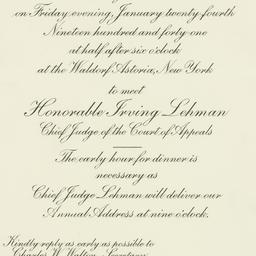 on Friday evening, January twenty-fourth
Nineteen hundred and forty-one
at half after six o'clock
at the Waldorf Astoria, New York
to meet
Honorable Irving Lehman
Chief Judge of the Court of Appeals
The early hour for dinner is
necessary as
Chief Judge Lehman will deliver our
Annual Address at nine o'clock.
Kindly reply as early as possible to
Charles W. Walton, Secretary